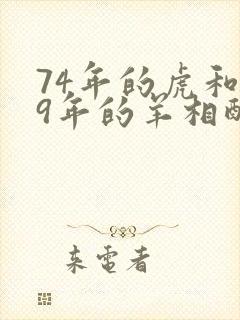 74年的虎和
9年的羊相配
来电者